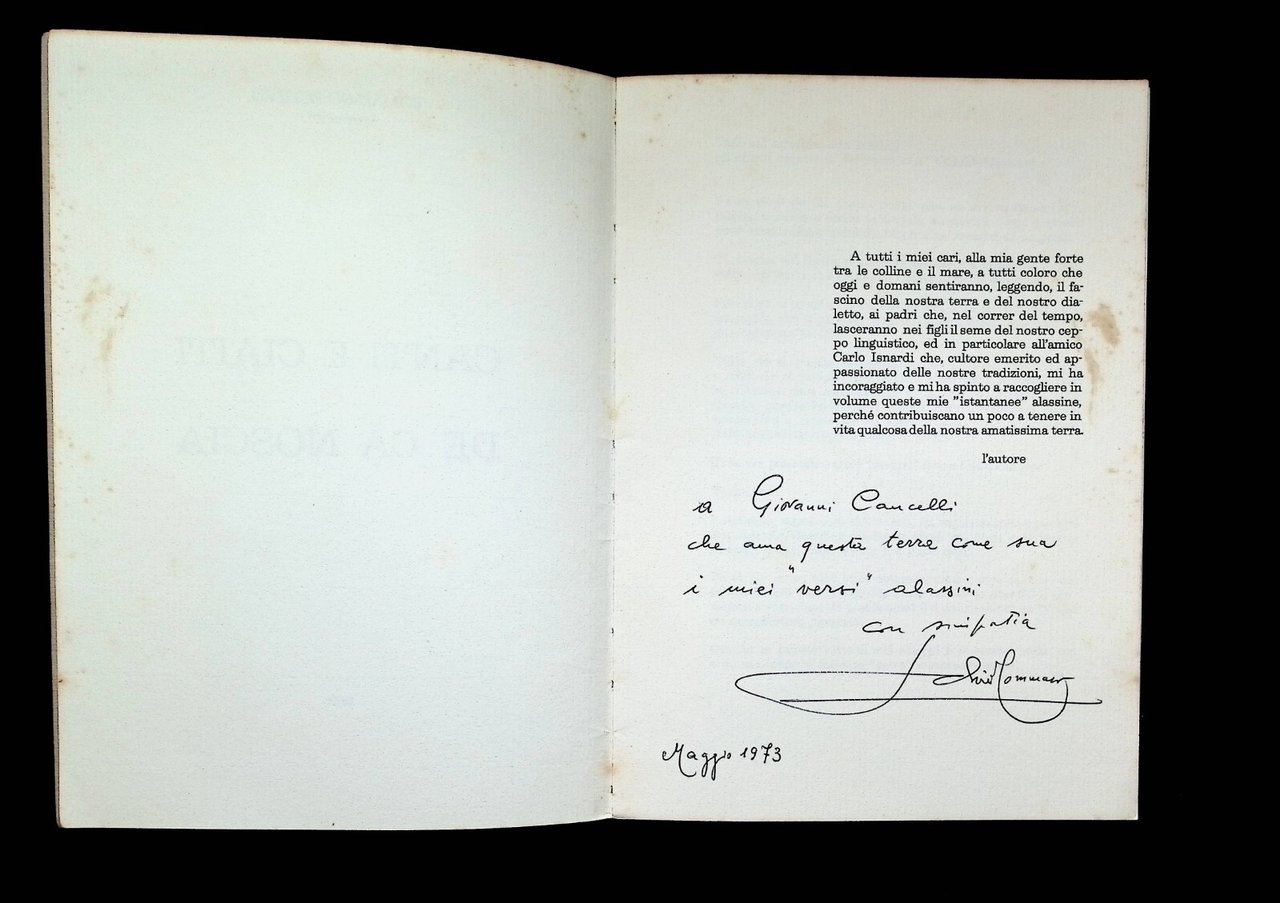 A tutti i miei cari, alla mia gente forte
tra le colline e il mare, a tutti coloro che
oggi e domani sentiranno, leggendo, il fa-
scino della nostra terra e del nostro dia-
letto, ai padri che, nel correr del tempo,
lasceranno nei figli il seme del nostro cep-
po linguistico, ed in particolare all'amico
Carlo Isnardi che, cultore emerito ed ap-
passionato delle nostre tradizioni, mi ha
incoraggiato e mi ha spinto a raccogliere in
volume queste mie "istantanee" alassine,
perché contribuiscano un poco a tenere in
vita qualcosa della nostra amatissima terra.
l'autore
a Giovanni Cancelli
che ama questa terra come sua
i miei "versi" alassini
con simpatia
Tommaso
Maggio 1973